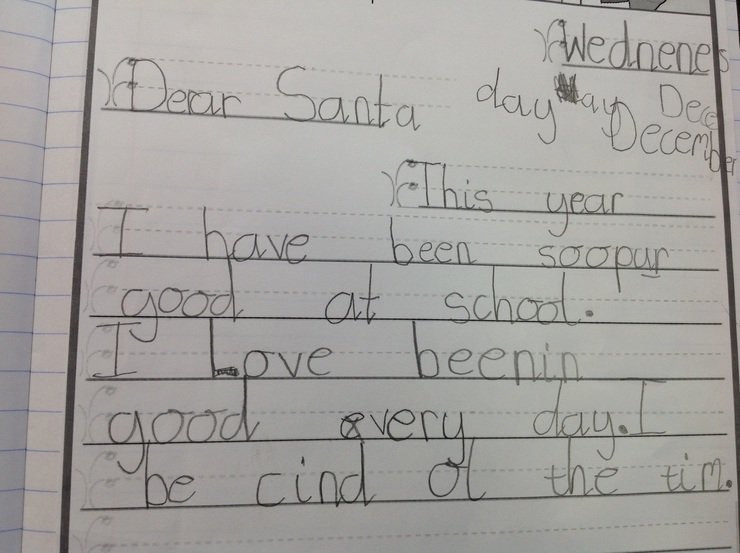 Wednenes
Dear Santa day Dece
December
This year
I have been soopur
good at school.
I Love beenin
good every day. I
be cind ol the tim.